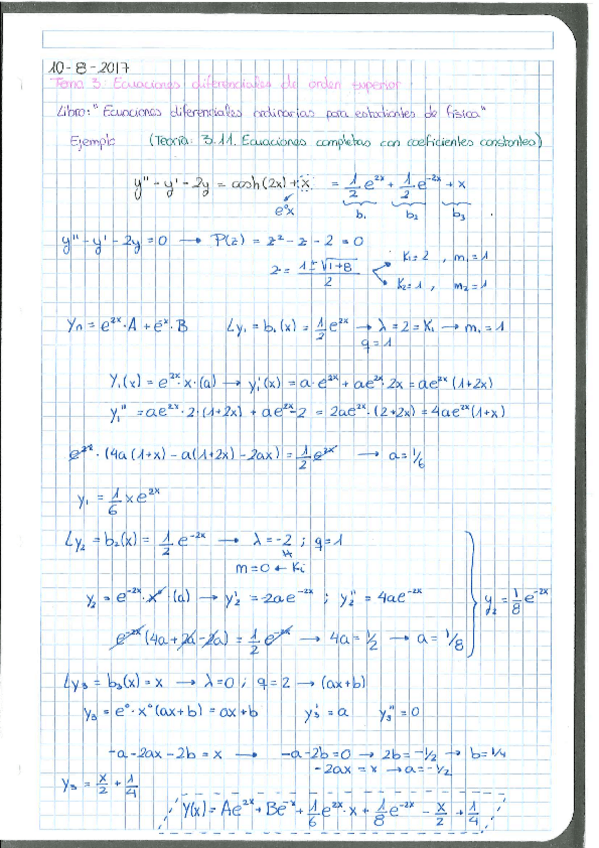 10-8-2017
Tema 3: Ecuaciones diferenciales de orden superior
Libro: "Ecuaciones diferenciales ordinarias para estudiantes de física"
Ejemplo (Teoría: 3.11. Ecuaciones completas con coeficientes constantes)
y'' - y' - 2y = cosh(2x) + x = 1/2 e^{2x} + 1/2 e^{-2x} + x
e^{0}x b₁ b₂ b₃
y'' - y' - 2y = 0 → P(z) = z² - z - 2 = 0
z = (1 ± √(1+8))/2 K₁ = 2, m₁ = 1
K₂ = 1, m₂ = 1
Yn = e^{2x}·A + e^{-x}·B Ly₁ = b₁(x) = 1/2 e^{2x} → λ = 2 = K₁ → m₁ = 1
q = 1
y₁(x) = e^{2x}·x·(a) → y₁'(x) = a·e^{2x} + ae^{2x}·2x = ae^{2x}(1+2x)
y₁'' = ae^{2x}·2·(1+2x) + ae^{2x}·2 = 2ae^{2x}·(2+2x) = 4ae^{2x}(1+x)
e^{2x}·(4a(1+x) - a(1+2x) - 2ax) = 1/2 e^{2x} → a = 1/6
y₁ = 1/6 xe^{2x}
Ly₂ = b₂(x) = 1/2 e^{-2x} → λ = -2 ; q = 1
m = 0 ← Ki
y₂ = e^{-2x}·x⁰·(a) → y₂' = 2ae^{-2x} ; y₂'' = 4ae^{-2x} y₂ = 1/8 e^{-2x}
e^{-2x}(4a + 2a - 2a) = 1/2 e^{-2x} → 4a = 1/2 → a = 1/8
Ly₃ = b₃(x) = x → λ = 0 ; q = 2 → (ax+b)
y₃ = e⁰·x⁰(ax+b) = ax+b y₃' = a y₃'' = 0
-a - 2ax - 2b = x → -a - 2b = 0 → 2b = -1/2 → b = 1/4
-2ax = x → a = -1/2
y₃ = x/2 + 1/4
Y(x) = Ae^{2x} + Be^{-x} + 1/6 e^{2x}·x + 1/8 e^{-2x} - x/2 + 1/4